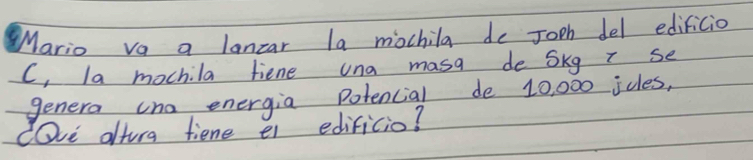 Mario va a lanzar la mochila de Joph del edificio
C, la mochila tiene una masa de 5kg y se
genera una energia Potencial de 10,000 jules,
¿Qué altura tiene el edificio?